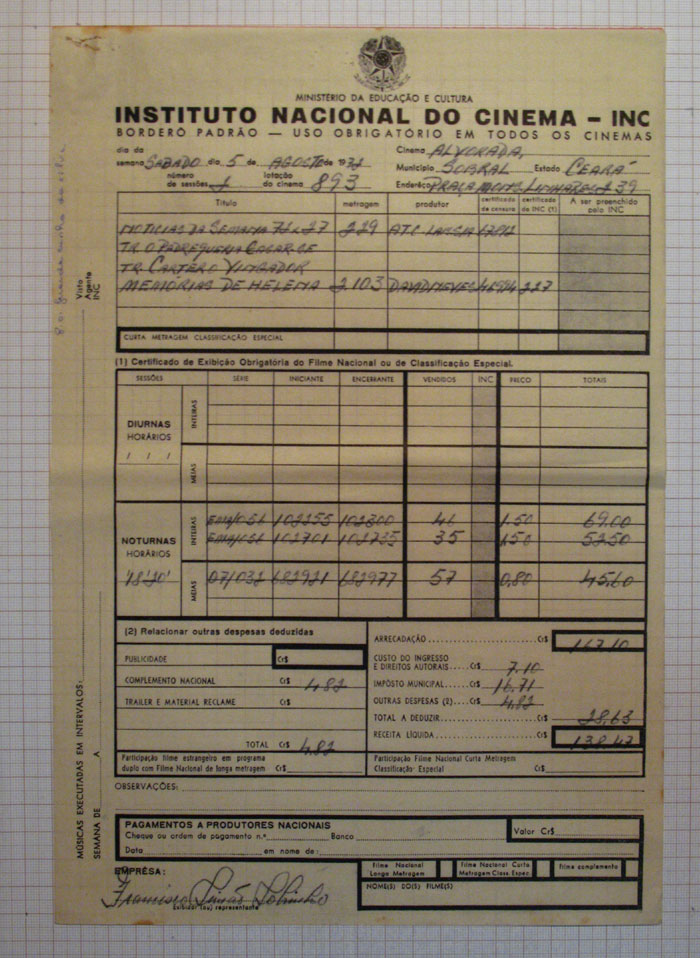 MINISTÉRIO DA EDUCAÇÃO E CULTURA
INSTITUTO NACIONAL DO CINEMA – INC
BORDERÔ PADRÃO — USO OBRIGATÓRIO EM TODOS OS CINEMAS
dia da semana SABADO dia 5 de AGOSTO de 19
número de sessões 1 lotação do cinema 893
Cinema ALVORADA,
Município SOBRAL Estado CEARÁ
Enderêço PRAÇA 139
Título metragem produtor certificado de censura certificado do INC (1) A ser preenchido pelo INC
NOTICIAS DA SEMANA 229
TR. O
TR. CARTERO VINGADOR
MEMÓRIAS DE HELENA 2103 DAVID NEVES 227
CURTA METRAGEM CLASSIFICAÇÃO ESPECIAL
Visto Agente INC
(1) Certificado de Exibição Obrigatória do Filme Nacional ou de Classificação Especial.
SESSÕES SÉRIE INICIANTE ENCERRANTE VENDIDOS INC PREÇO TOTAIS
DIURNAS
HORÁRIOS
INTEIRAS
MEIAS
NOTURNAS
HORÁRIOS
INTEIRAS
102255 102300 46 1.50 69.00
102701 102735 35 1.50 52.50
18'20' MEIAS 07/032 682921 682977 57 0,80 45,60
(2) Relacionar outras despesas deduzidas
PUBLICIDADE Cr$
COMPLEMENTO NACIONAL Cr$ 4.82
TRAILER E MATERIAL RECLAME Cr$
TOTAL Cr$ 4.82
Participação filme estrangeiro em programa
duplo com Filme Nacional de longa metragem Cr$
ARRECADAÇÃO Cr$ 167.10
CUSTO DO INGRESSO
E DIREITOS AUTORAIS Cr$ 7.10
IMPÔSTO MUNICIPAL Cr$ 16.71
OUTRAS DESPESAS (2) Cr$ 4.82
TOTAL A DEDUZIR Cr$ 28,63
RECEITA LÍQUIDA Cr$ 138.47
Participação Filme Nacional Curta Metragem
Classificação-Especial Cr$
OBSERVAÇÕES:
PAGAMENTOS A PRODUTORES NACIONAIS
Cheque ou ordem de pagamento n.º Banco
Data em nome de:
Valor Cr$
Filme Nacional Longa Metragem
Filme Nacional Curta Metragem Class. Espec
filme complemento
NOME(S) DO(S) FILME(S)
EMPRÊSA:
Francisco
exibidor (ou) representante
MÚSICAS EXECUTADAS EM INTERVALOS:
SEMANA DE A